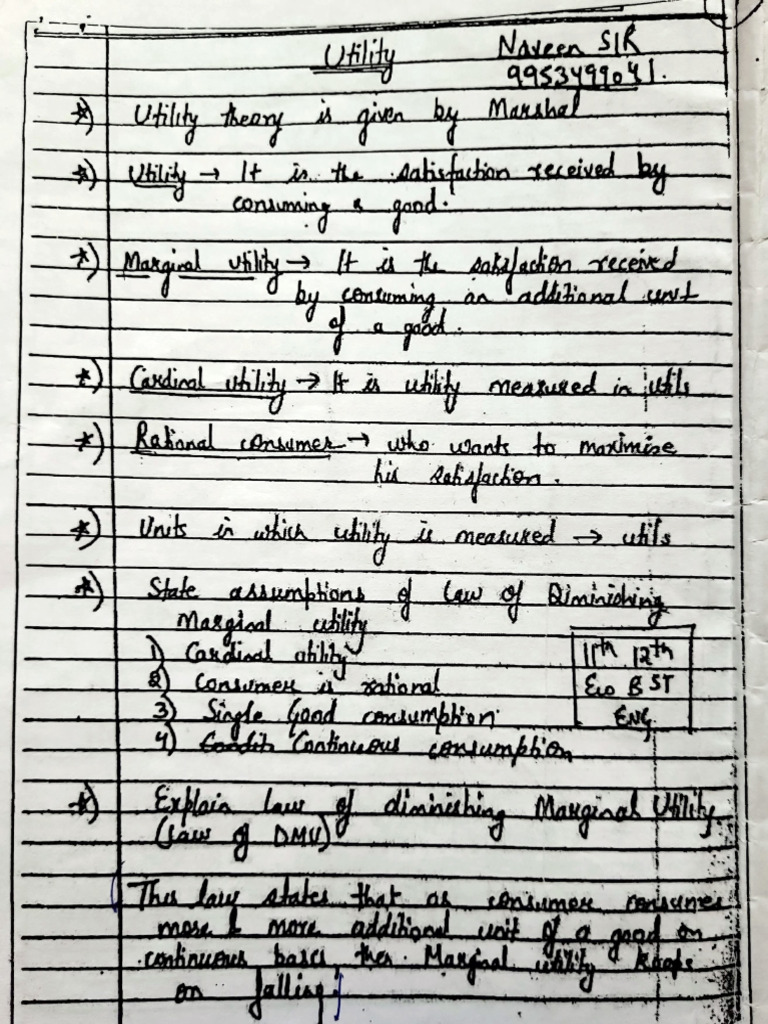 Utility Naveen SIR
9953499041.
*) Utility theory is given by Marshal
*) Utility → It is the satisfaction received by
consuming a good.
*) Marginal Utility → It is the satisfaction received
by consuming an additional unit
of a good.
*) Cardinal utility → It is utility measured in utils
*) Rational consumer → who wants to maximise
his satisfaction.
*) Units in which utility is measured → utils
*) State assumptions of law of Diminishing
Marginal utility
1) Cardinal utility
2) Consumer is rational
3) Single Good consumption
4) Continuous consumption
11th 12th
Eco B ST
ENG
*) Explain law of diminishing Marginal Utility
(Law of DMU)
This law states that as consumer consumes
more & more additional unit of a good on
continuous basis, then Marginal utility keeps
on falling.